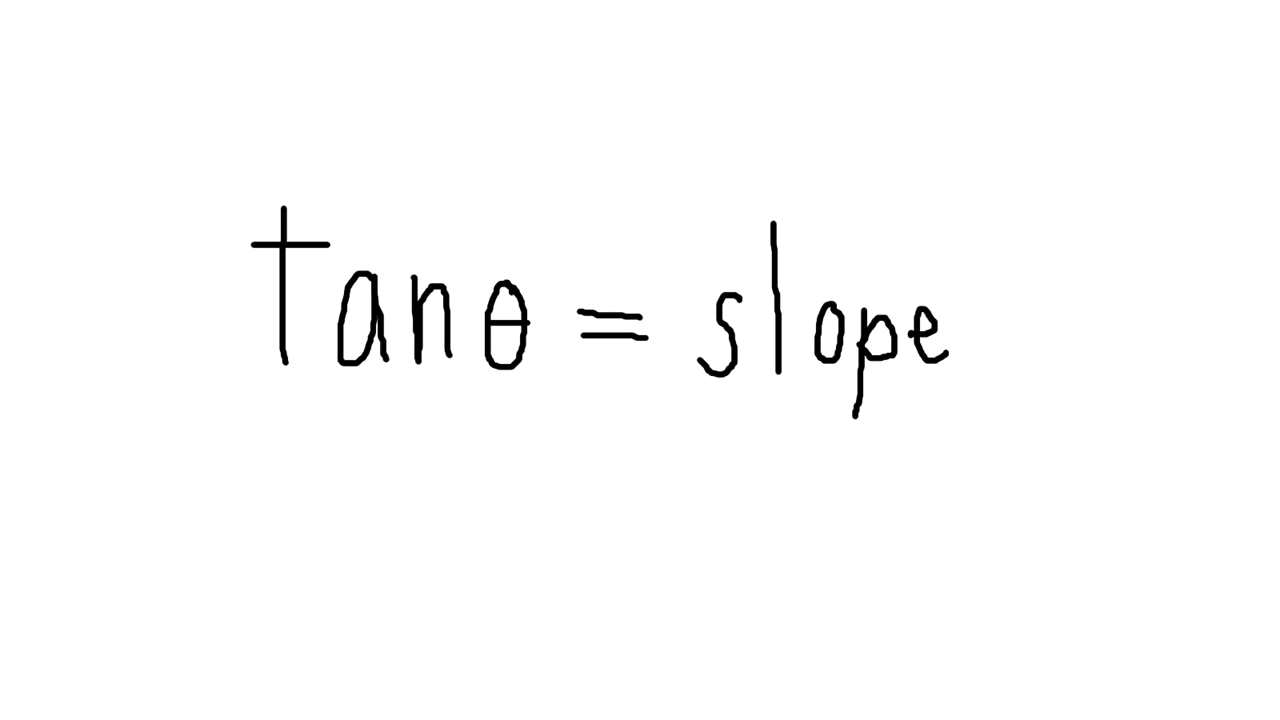 tanθ = slope